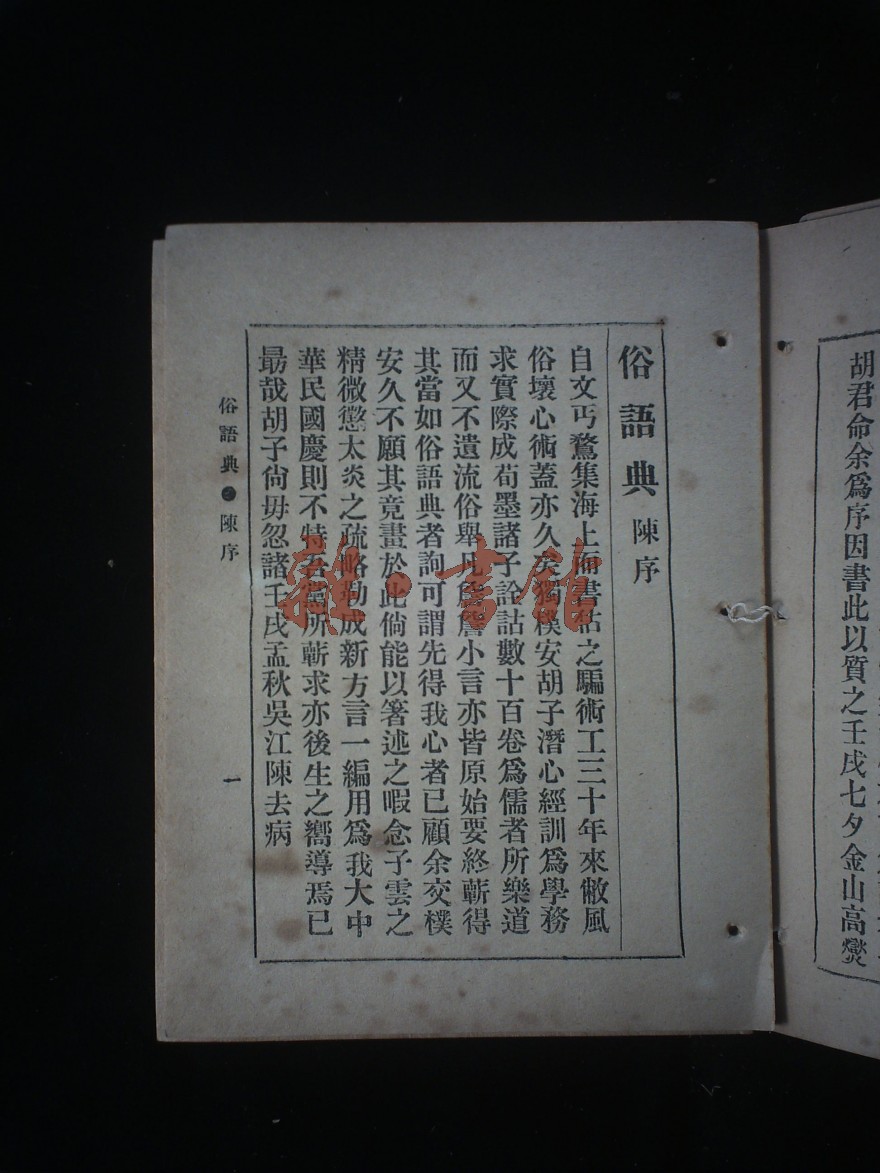 胡君命余爲序因書此以質之壬戌七夕金山高燮
俗語典 陳序
自文丐鶩集海上而書估之騙術工三十年來敝風
俗壞心術蓋亦久矣獨樸安胡子潛心經訓爲學務
求實際成荀墨諸子詮詁數十百卷爲儒者所樂道
而又不遺流俗舉凡詹詹小言亦皆原始要終蘄得
其當如俗語典者詢可謂先得我心者已顧余交樸
安久不願其竟畫於此倘能以箸述之暇念子雲之
精微懲太炎之疏略勒成新方言一編用爲我大中
華民國慶則不特吾黨所蘄求亦後生之嚮導焉已
最哉胡子尙毋忽諸壬戌孟秋吳江陳去病
俗語典 ● 陳序
一
雜·書館